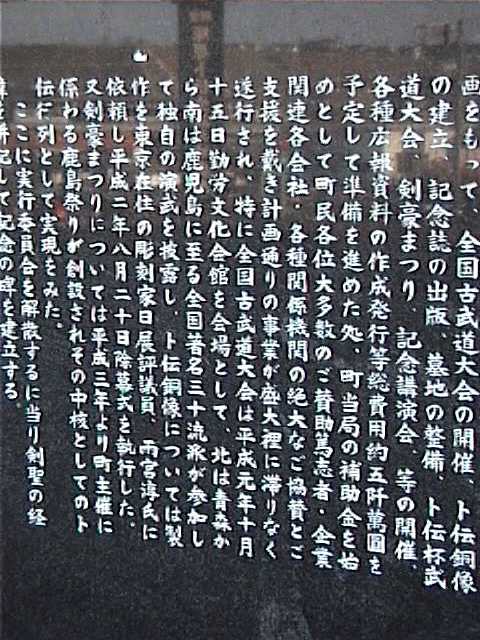 画をもって、全国古武道大会の開催、卜伝銅像
の建立、記念誌の出版、墓地の整備、卜伝杯武
道大会、剣豪まつり、記念講演会、等の開催、
各種広報資料の作成発行等総費用約五阡萬圓を
予定して準備を進めた処、町当局の補助金を始
めとして町民各位大多数のご賛助篤志者・企業
関連各会社・各種関係機関の絶大なご協賛とご
支援を戴き計画通りの事業が盛大裡に滞りなく
遂行され、特に全国古武道大会は平成元年十月
十五日勤労文化会館を会場として、北は青森か
ら南は鹿児島に至る全国著名三十流派が参加し
て独自の演武を披露し、卜伝銅像については製
作を東京在住の彫刻家日展評議員、雨宮淳氏に
依頼し平成二年八月二十日除幕式を執行した。
又剣豪まつりについては平成三年より町主催に
係わる鹿島祭りが創設されその中核としての卜
伝行列として実現をみた。
ここに実行委員会を解散するに当り剣聖の経
偉を併記して記念の碑を建立する。